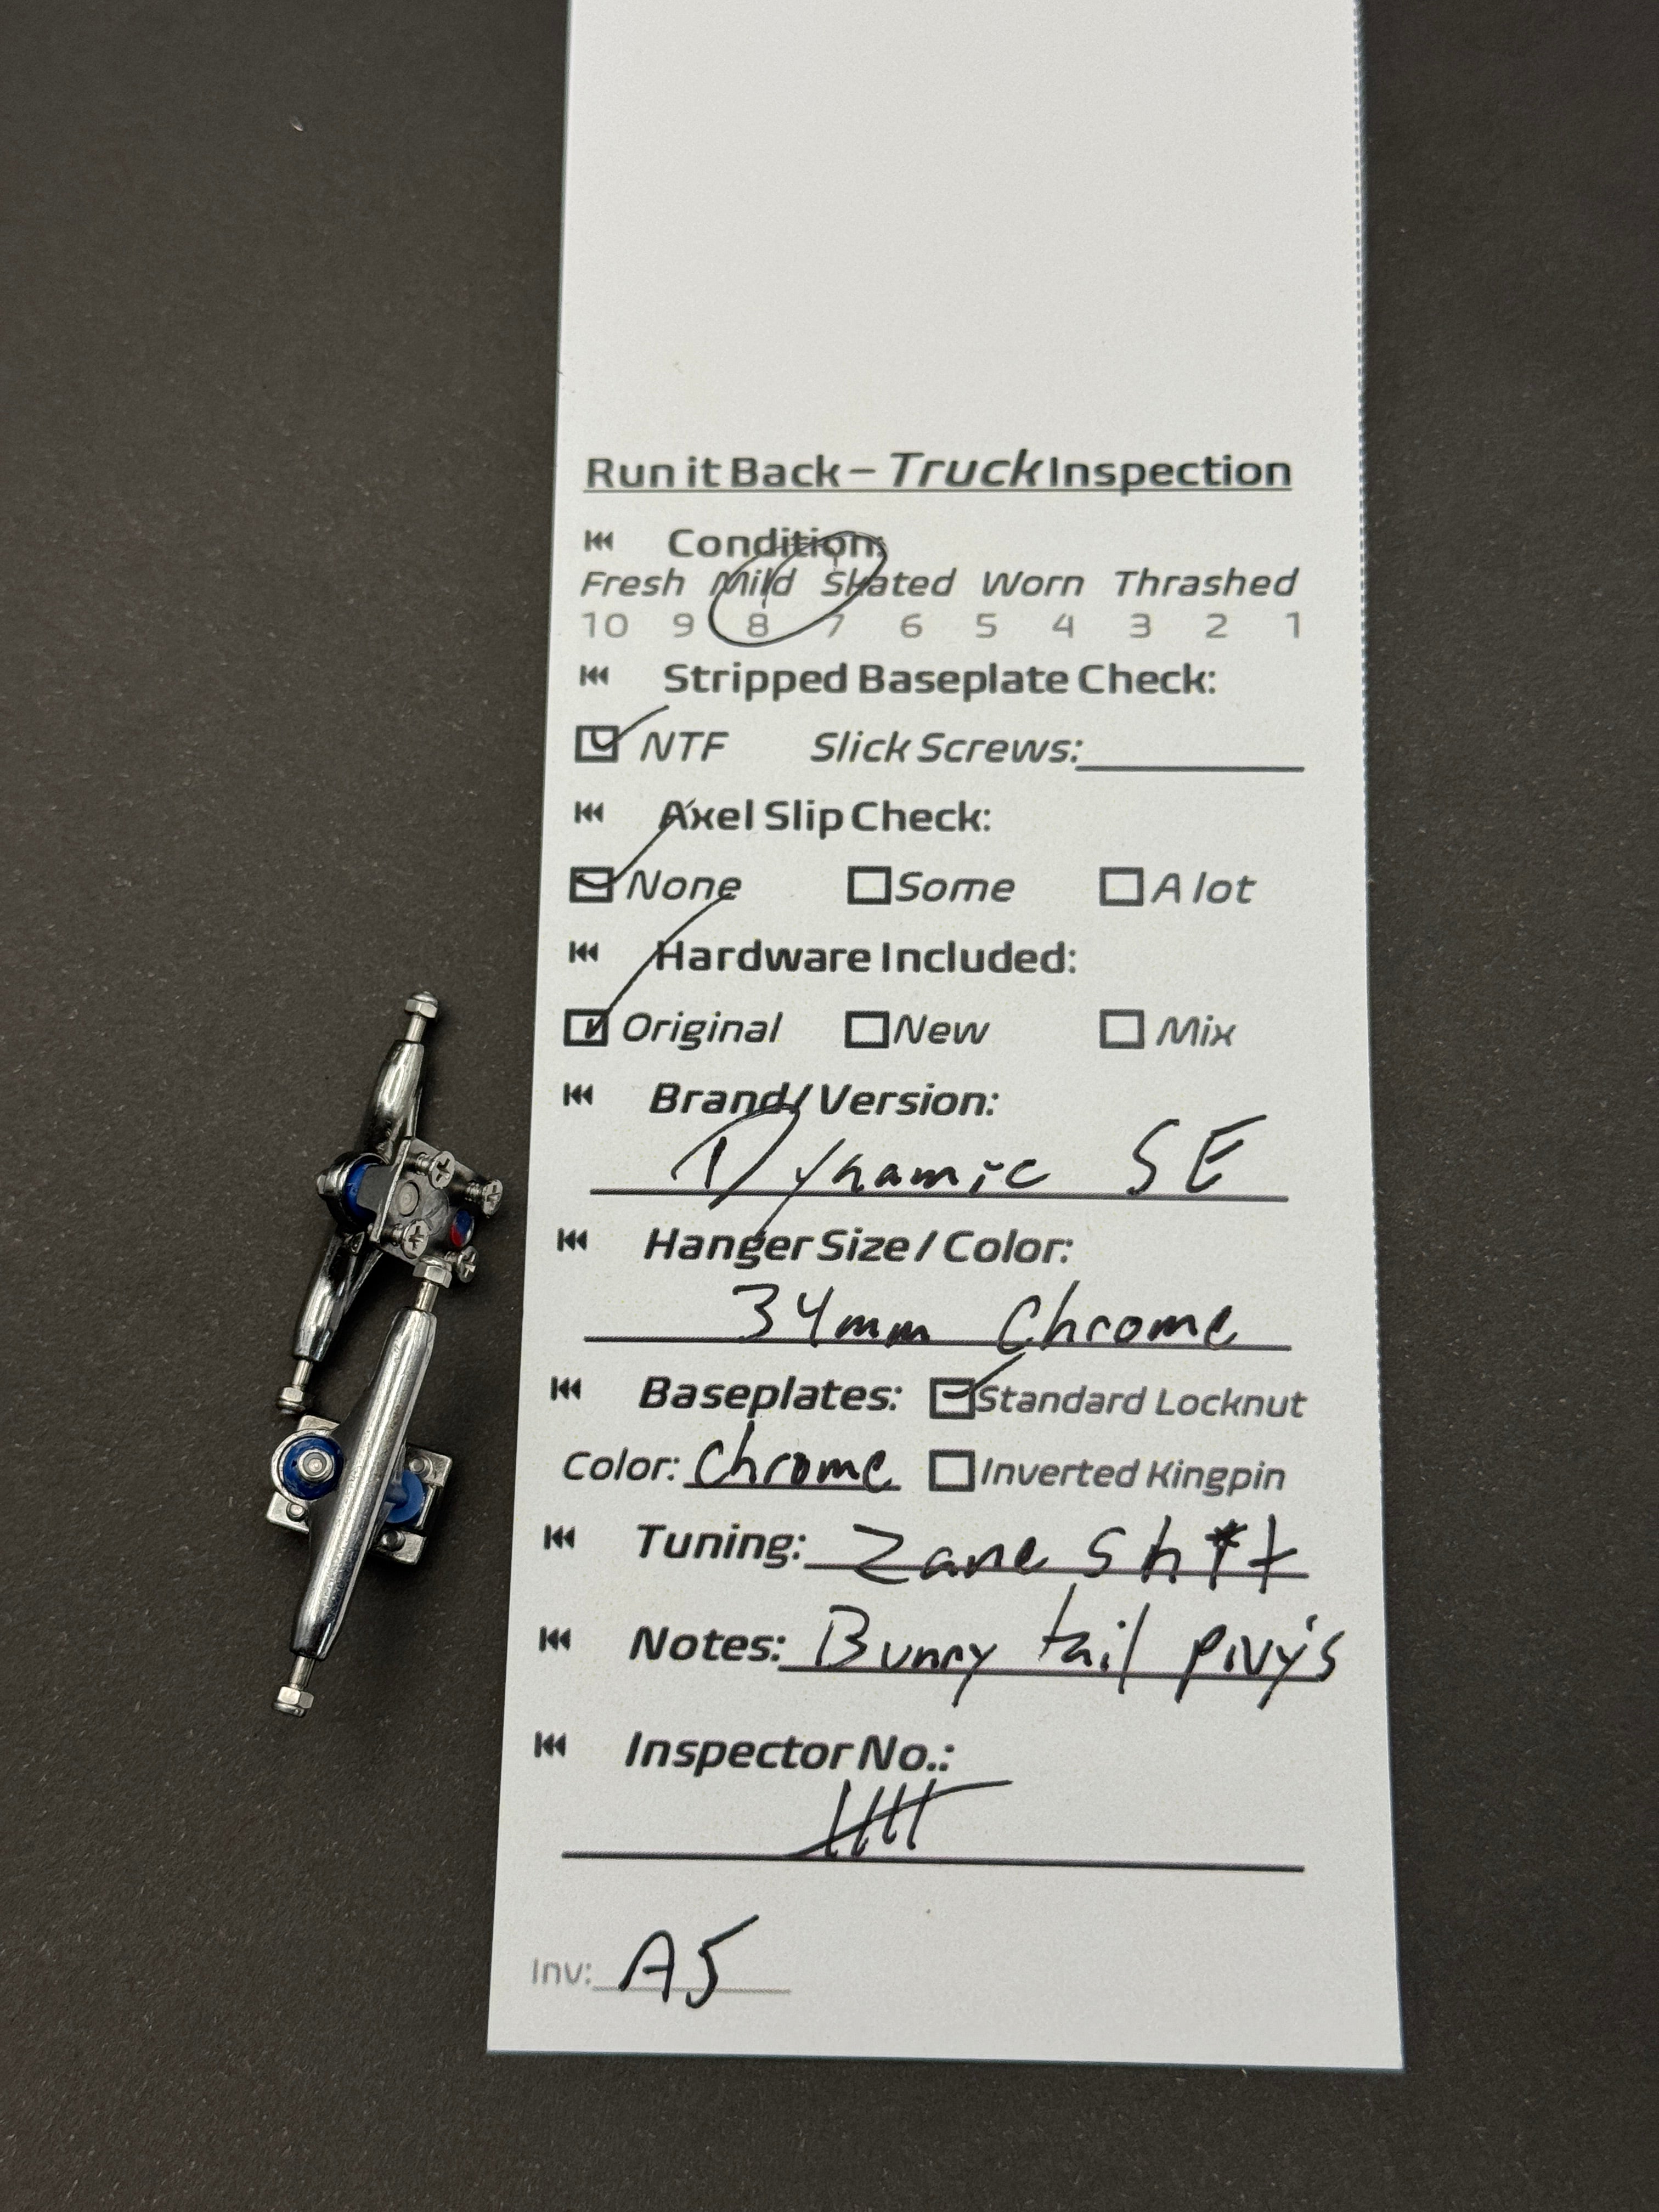 Run it Back – Truck Inspection
Condition:
Fresh Mild Skated Worn Thrashed
10 9 8 7 6 5 4 3 2 1
Stripped Baseplate Check:
NTF Slick Screws:
Axel Slip Check:
None Some A lot
Hardware Included:
Original New Mix
Brand / Version:
Dynamic SE
Hanger Size / Color:
34mm Chrome
Baseplates: Standard Locknut
Color: Chrome Inverted Kingpin
Tuning: Zane Sh*t
Notes: Bunny tail pivy's
Inspector No.:
Inv: A5